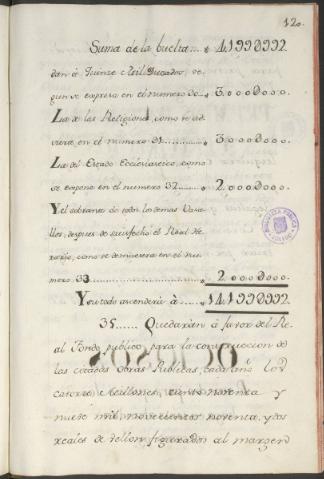 120.
Suma de la buelta... 4.199@992.
dan à Quinze Mil Ducados, se-
gun se expresa en el numero 30... 3.000@000.
La de las Religiones, como se ad-
vierte en el numero 31........ 3.000@000.
La del Estado Ecclesiastico, como
se expone en el numero 32........ 2.000@000.
Y el sobrante de todos los demas Vasa-
llos, despues de satisfecho el Real He-
rario, como se demuestra en el nu-
mero 33 2.000@000.
Y su todo ascenderà à..... 14.199@992.
35...... Quedaràn à favor del Re-
al Fondo publico para la construccion de
las citadas Obras Publicas, cada año los
catorce Millones, ciento noventa y
nueve mil, novecientos noventa, y dos
reales de vellon figurados al margen
BIBLIOTECA PUBLICA
TOLEDO